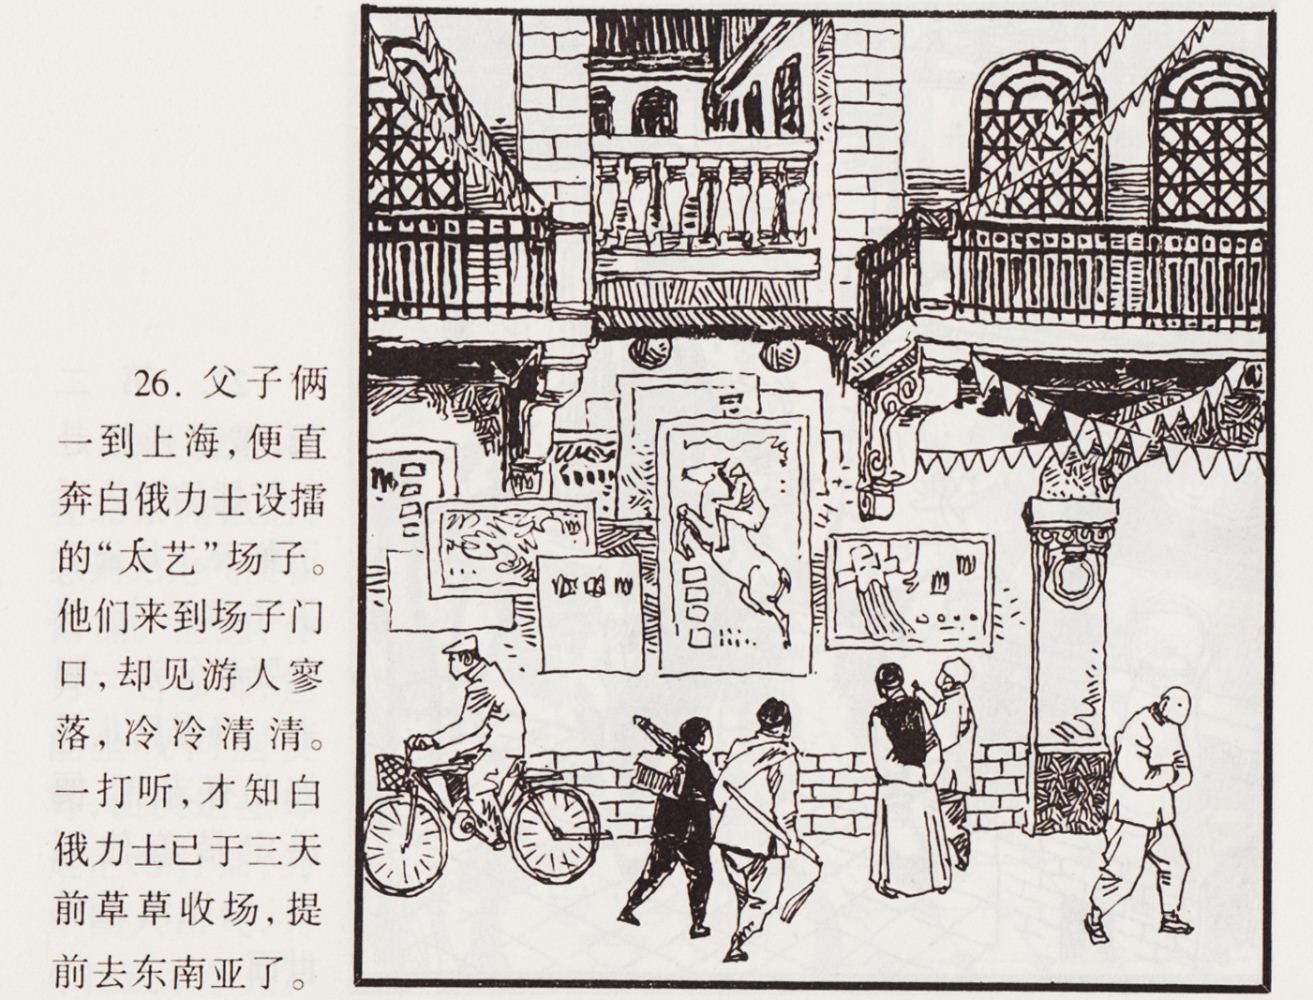 26. 父子俩
一到上海，便直
奔白俄力士设擂
的“太艺”场子。
他们来到场子门
口，却见游人寥
落，冷冷清清。
一打听，才知白
俄力士已于三天
前草草收场，提
前去东南亚了。